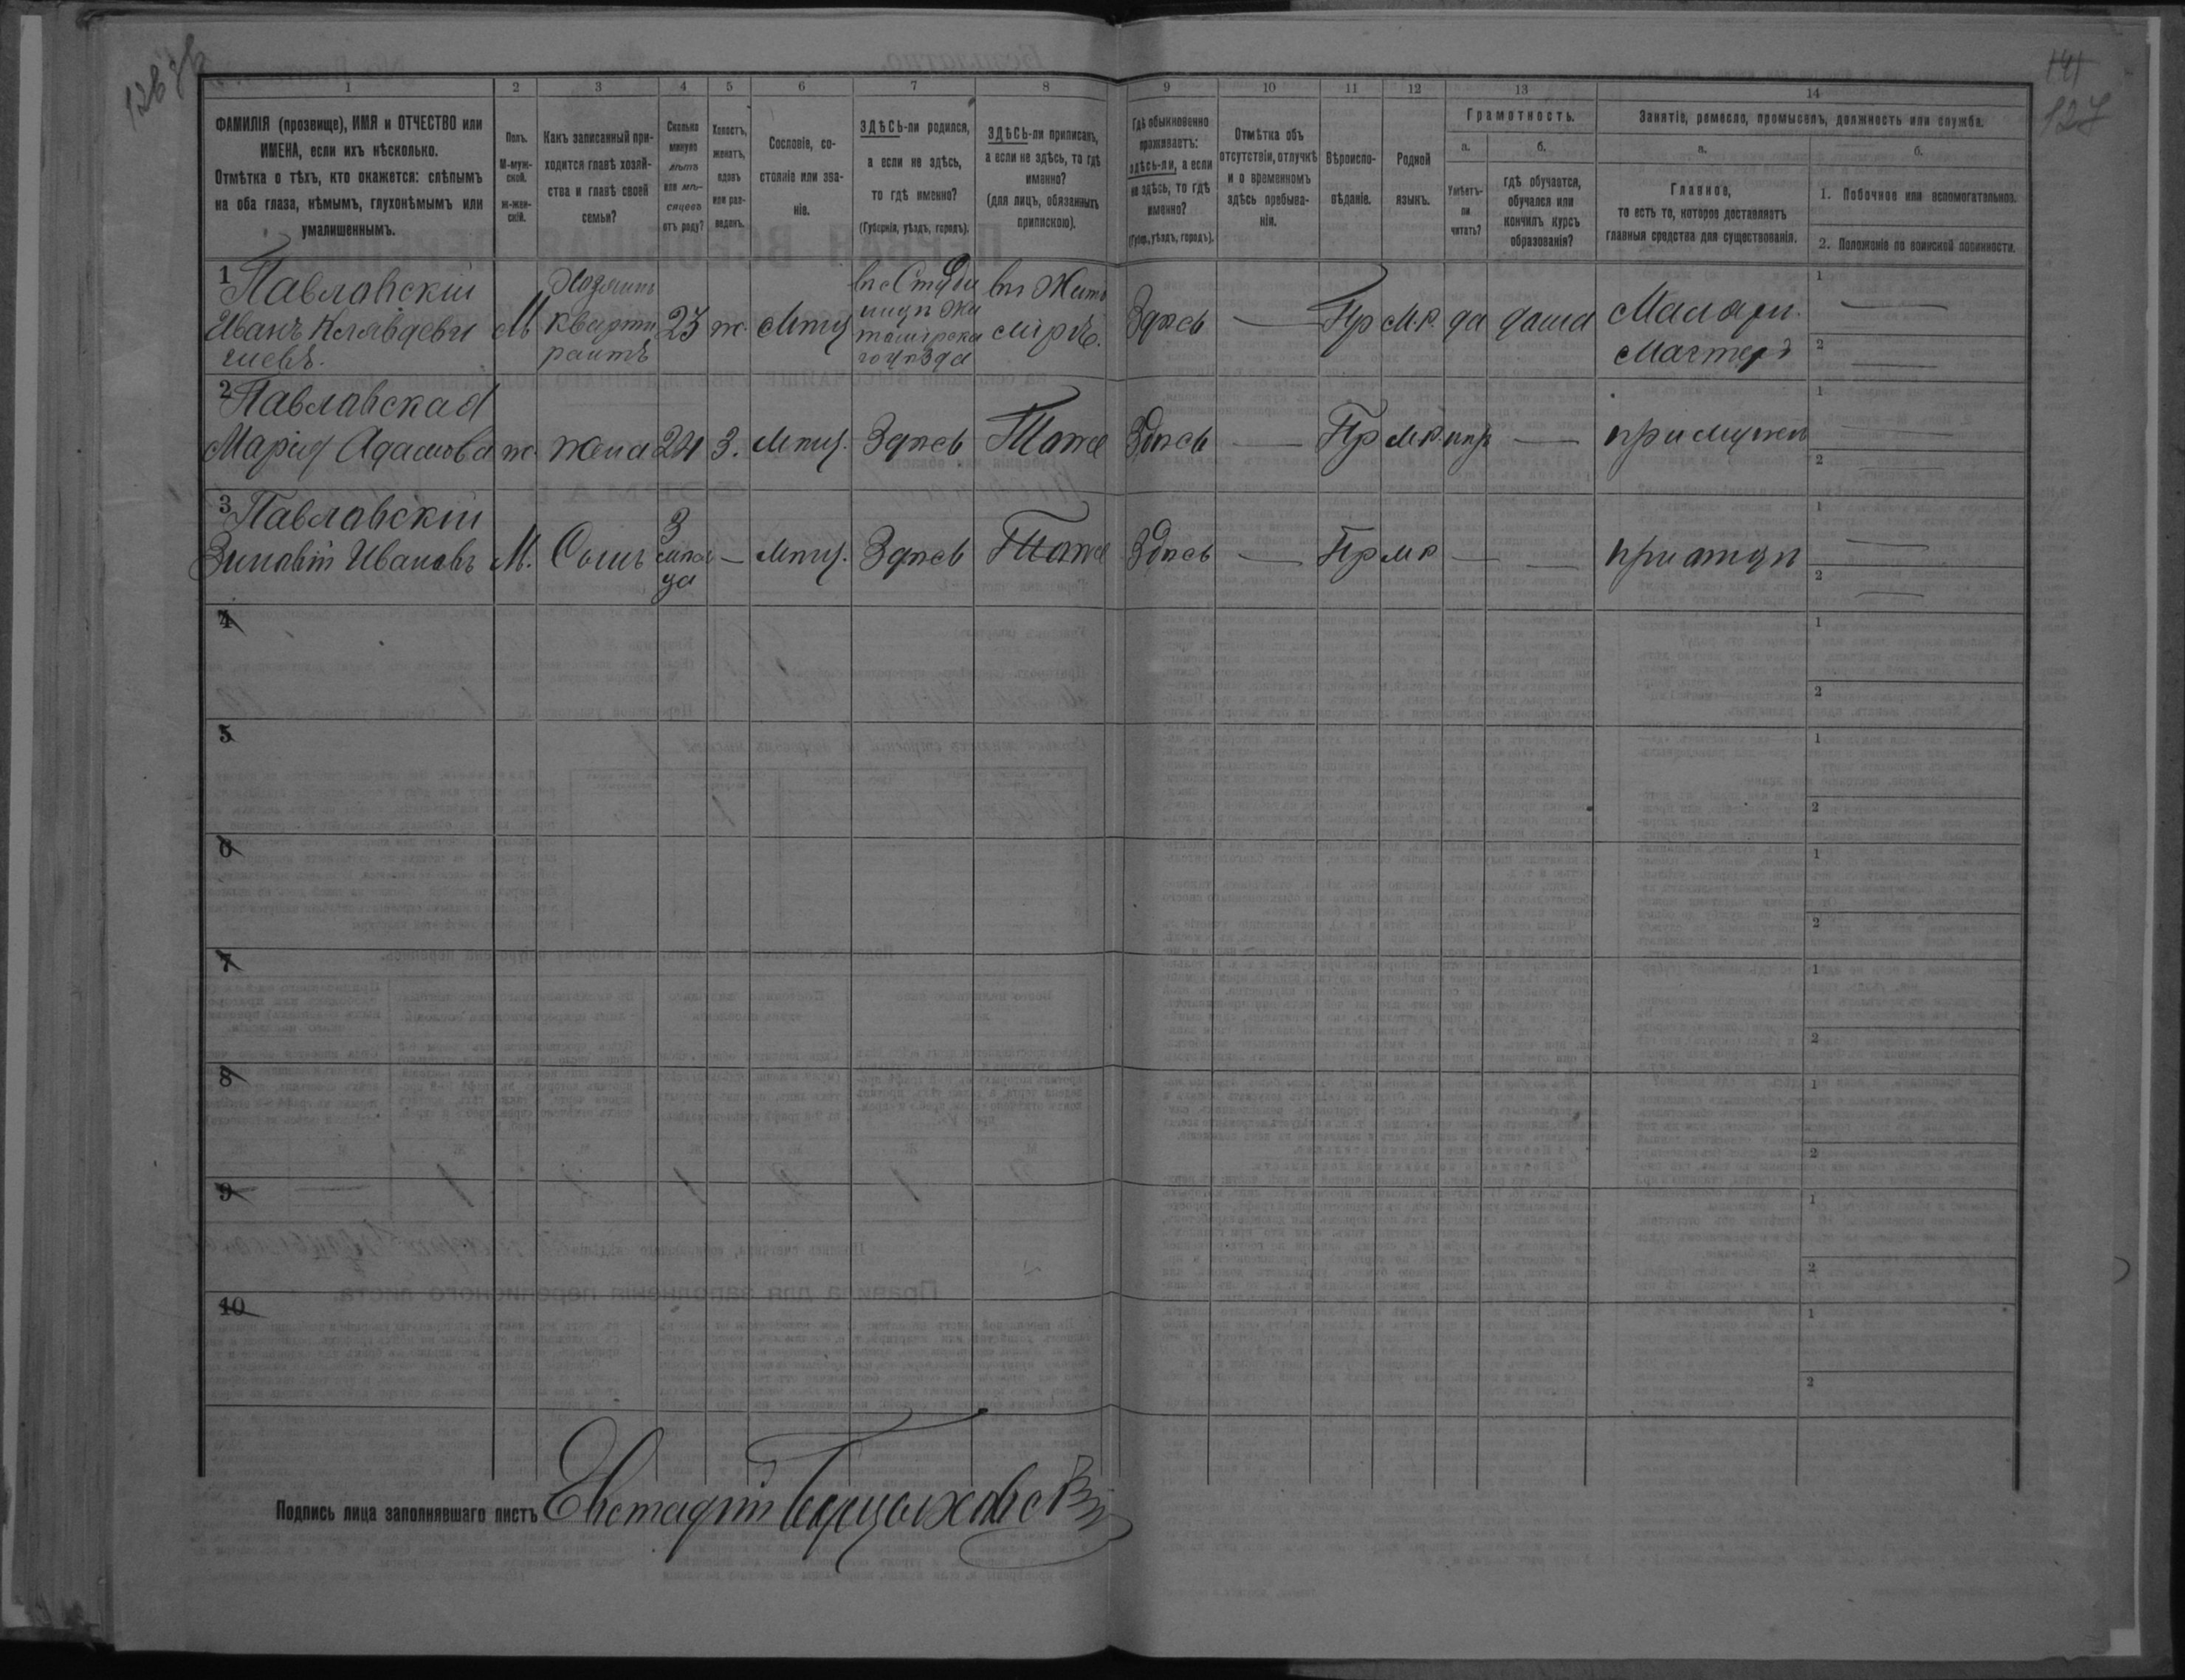 126
141
127
1 2 3 4 5 6 7 8 9 10 11 12 13 14
ФАМИЛІЯ (прозвище), ИМЯ и ОТЧЕСТВО или
ИМЕНА, если ихъ нѣсколько.
Отмѣтка о тѣхъ, кто окажется: слѣпымъ
на оба глаза, нѣмымъ, глухонѣмымъ или
умалишеннымъ.
Полъ.
М-муж-
ской.
ж-жен-
скій.
Какъ записанный при-
ходится главѣ хозяй-
ства и главѣ своей
семьи?
Сколько
минуло
лѣтъ
или мѣ-
сяцевъ
отъ роду?
Холостъ,
женатъ,
вдовъ
или раз-
веденъ.
Сословіе, со-
стояніе или зва-
ніе.
ЗДѢСЬ-ли родился,
а если не здѣсь,
то гдѣ именно?
(Губернія, уѣздъ, городъ).
ЗДѢСЬ-ли приписанъ,
а если не здѣсь, то гдѣ
именно?
(для лицъ, обязанныхъ
припискою).
Гдѣ обыкновенно
проживаетъ:
здѣсь-ли, а если
не здѣсь, то гдѣ
именно?
(Губер., уѣздъ, городъ).
Отмѣтка объ
отсутствіи, отлучкѣ
и о временномъ
здѣсь пребыва-
ніи.
Вѣроиспо-
вѣданіе.
Родной
языкъ.
Грамотность.
а.
Умѣетъ-
ли
читать?
б.
гдѣ обучается,
обучался или
кончилъ курсъ
образованія?
Занятіе, ремесло, промыселъ, должность или служба.
а.
Главное,
то есть то, которое доставляетъ
главныя средства для существованія.
б.
1. Побочное или вспомогательное.
2. Положеніе по воинской повинности.
1 Павловскій
Иванъ Клявдеви
гиевъ.
М
Хозяинъ
кварти
рантъ
23
ж.
Мѣщ
Жи
томірска
го уѣзда
въ Жито
мірѣ.
Здѣсь
—
Пр
М.р.
да
дома
Маляр.
Мастеръ
1 —
2 —
2 Павловская
Марія Адамова
ж.
жена
24
З.
Мѣщ.
Здѣсь
Тоже
Здѣсь
—
Пр
М.р.
—
при мужѣ
1 —
2 —
3 Павловскій
Зиновій Ивановъ
М.
Сынъ
3
мѣся
ца
—
Мѣщ.
Здѣсь
Тоже
Здѣсь
—
Пр
М р
—
—
при отцѣ
1 —
2 —
4
1
2
5
1
2
6
1
2
7
1
2
8
1
2
9
1
2
10
1
2
Подпись лица заполнявшаго листъ Евстафій